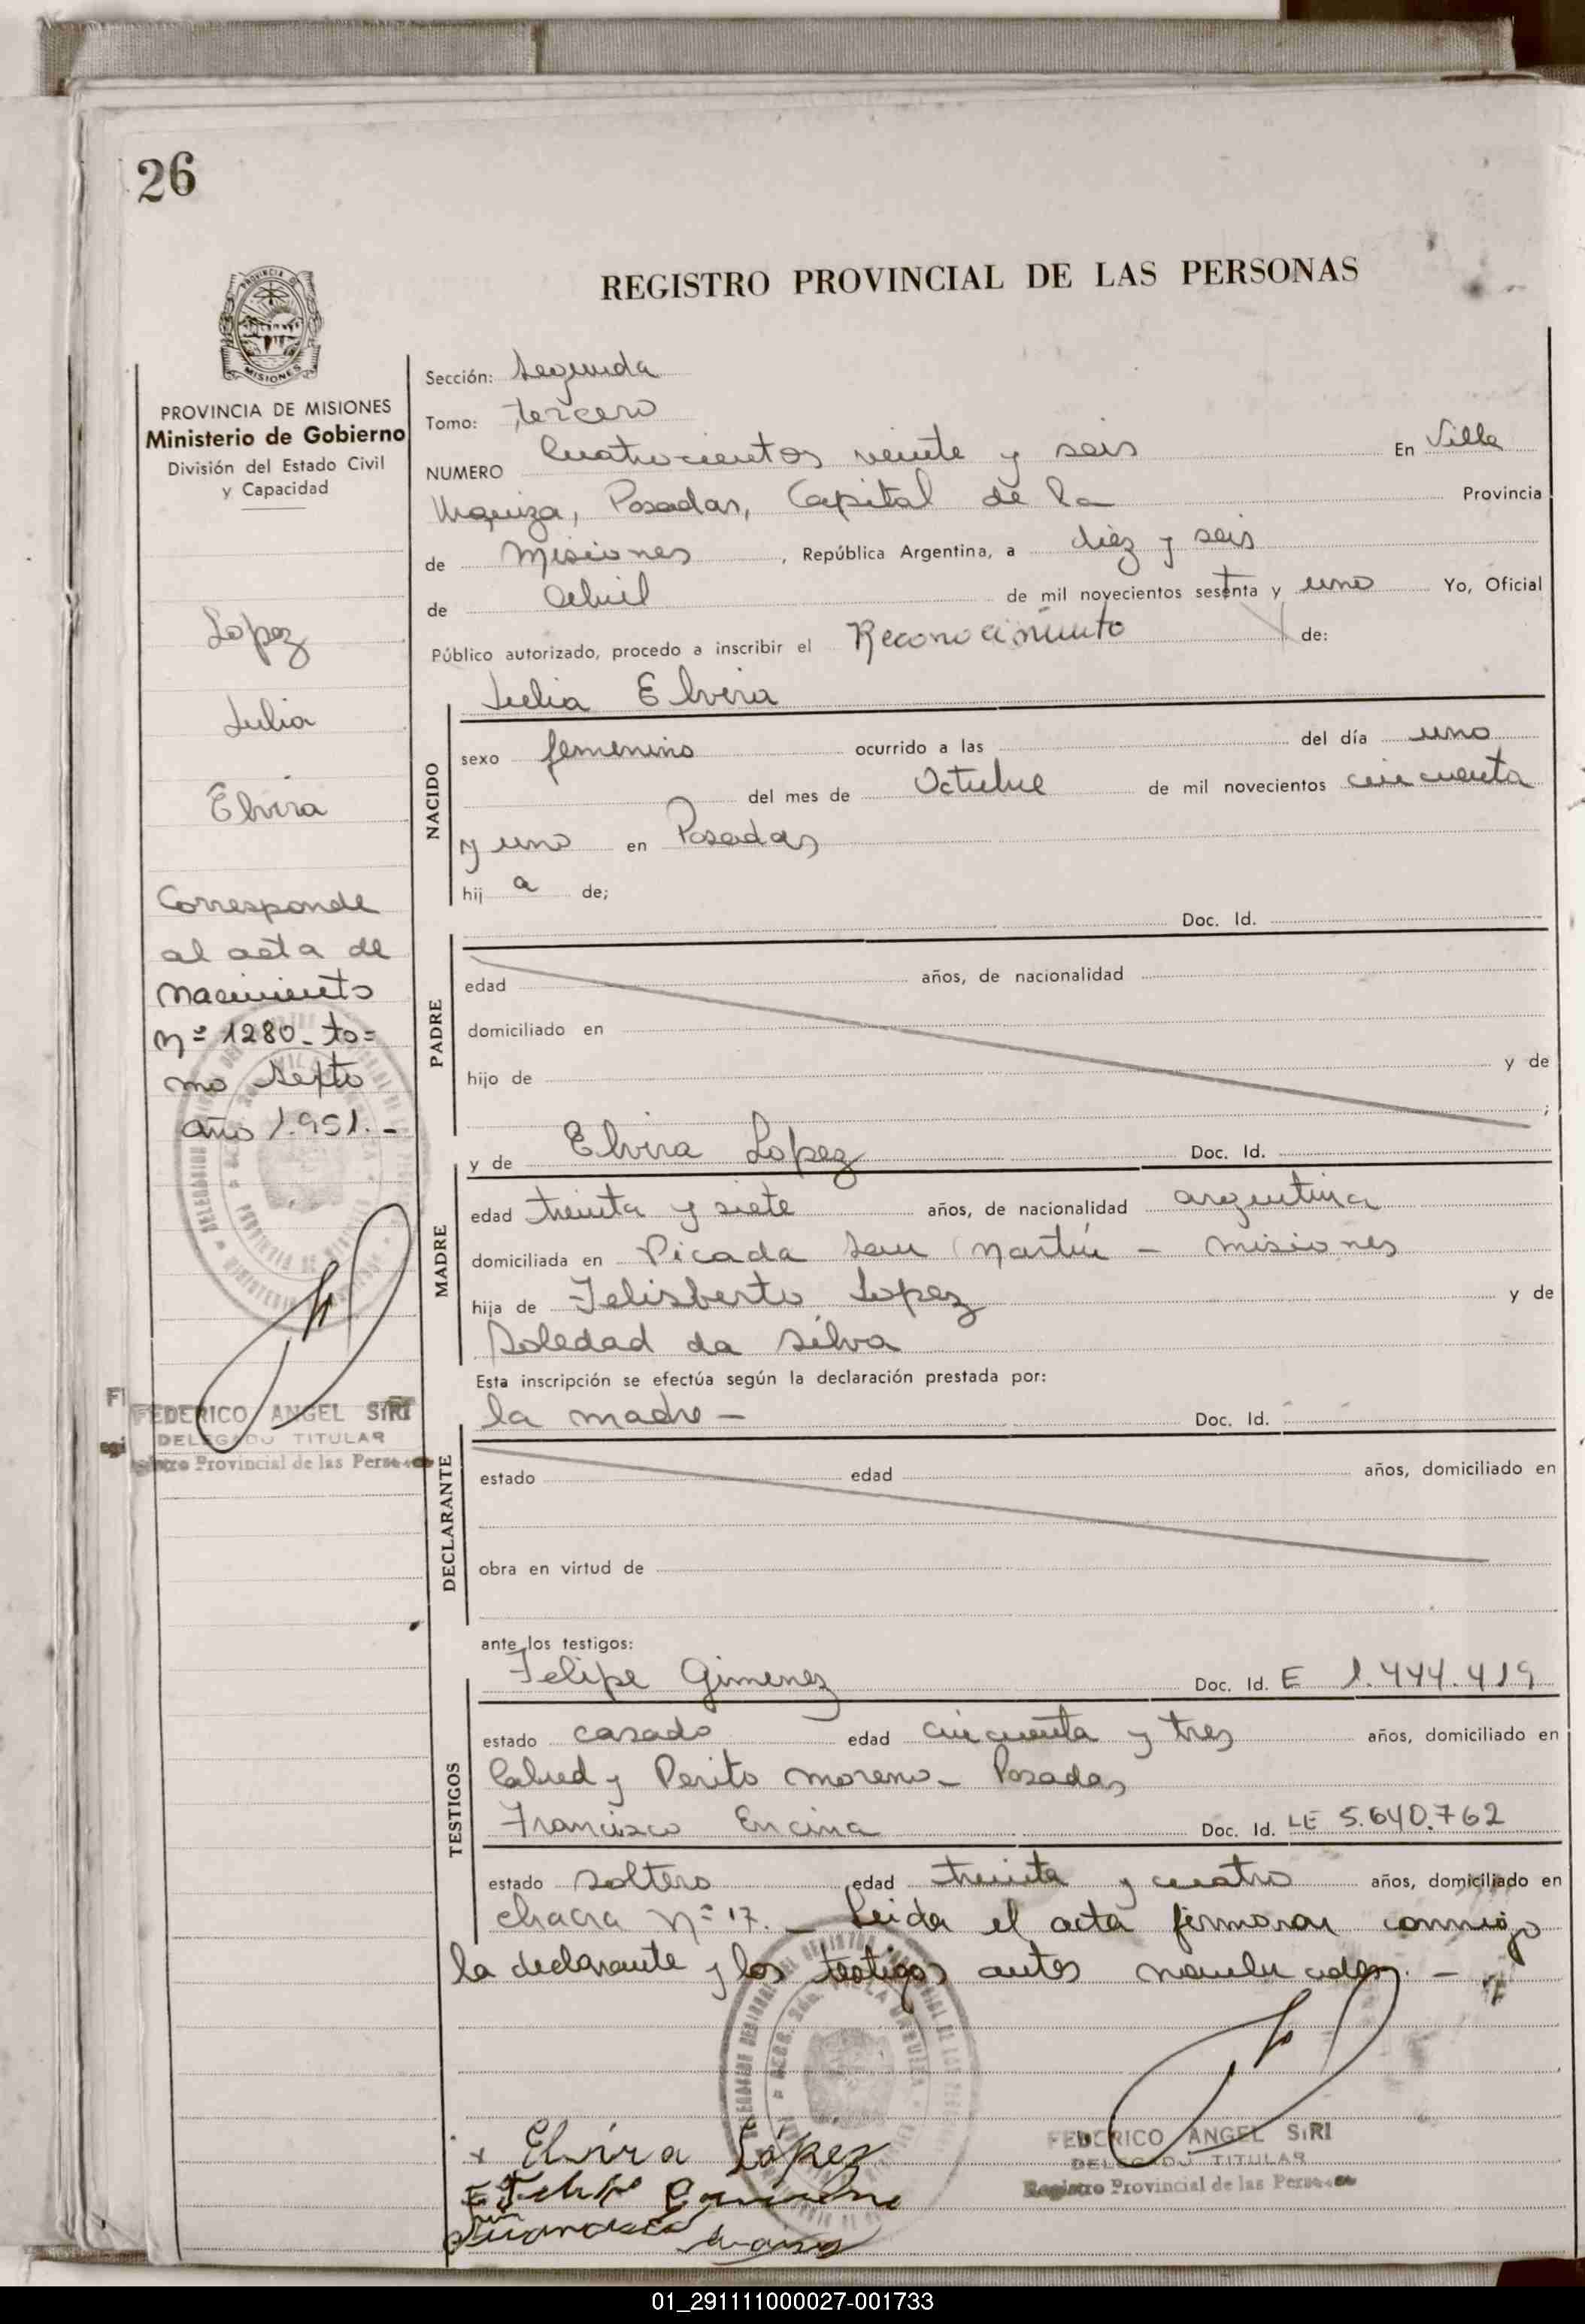 26
PROVINCIA DE
MISIONES
REGISTRO PROVINCIAL DE LAS PERSONAS
PROVINCIA DE MISIONES
Ministerio de Gobierno
División del Estado Civil
y Capacidad
Lopez
Julia
Elvira
Corresponde
al acta de
nacimiento
nº 1280 - to=
mo sexto
año 1.951. -
FEDERICO ANGEL SIRI
DELEGADO TITULAR
Registro Provincial de las Personas
Sección: Segunda
Tomo: tercero
NUMERO Cuatrocientos veinte y seis En Villa
Urquiza, Posadas, Capital de la Provincia
de Misiones, República Argentina, a diez y seis
de Abril de mil novecientos sesenta y uno Yo, Oficial
Público autorizado, procedo a inscribir el Reconocimiento de:
NACIDO
Julia Elvira
sexo femenino ocurrido a las del día uno
del mes de Octubre de mil novecientos cincuenta
y uno en Posadas
hij a de;
PADRE
Doc. Id.
edad años, de nacionalidad
domiciliado en
hijo de y de
;
MADRE
y de Elvira Lopez Doc. Id.
edad treinta y siete años, de nacionalidad argentina
domiciliada en Picada San Martín - Misiones
hija de Felisberto Lopez y de
Soledad da Silva
Esta inscripción se efectúa según la declaración prestada por:
DECLARANTE
la madre - Doc. Id.
estado edad años, domiciliado en
obra en virtud de
ante los testigos:
TESTIGOS
Felipe Gimenez Doc. Id. E 1.444.419
estado casado edad cincuenta y tres años, domiciliado en
Cabred y Perito Moreno - Posadas
Francisco Encina Doc. Id. LE 5.640.762
estado soltero edad treinta y cuatro años, domiciliado en
chacra Nº 17. - Leida el acta firmaron conmigo
la declarante y los testigos antes nombrados. -
Elvira López
FEDERICO ANGEL SIRI
DELEGADO TITULAR
Registro Provincial de las Personas
01_291111000027-001733